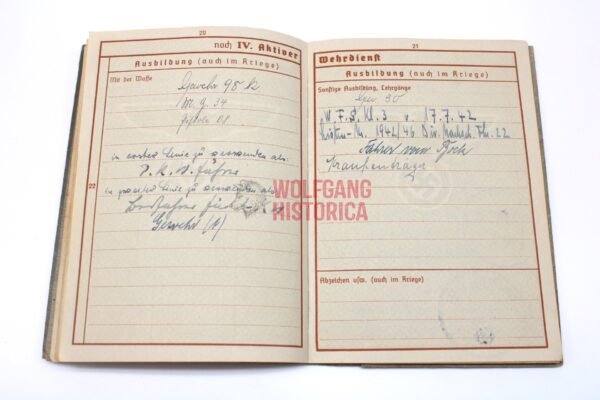 20
noch IV. Aktiver
Ausbildung (auch im Kriege)
Mit der Waffe
Gewehr 98 k
M.G. 34
Pistole 08
in erster Linie zu verwenden als:
in zweiter Linie zu verwenden als:
Gewehr
22
21
Wehrdienst
Ausbildung (auch im Kriege)
Sonstige Ausbildung, Lehrgänge
W. F. S. Kl. 3 v. 17.7.42
Listen-Nr. 1942/46 Div. Nachsch. Fü. 22
Fahrer vom Bock
Krankenträger
Abzeichen usw. (auch im Kriege)
WOLFGANG
HISTORICA